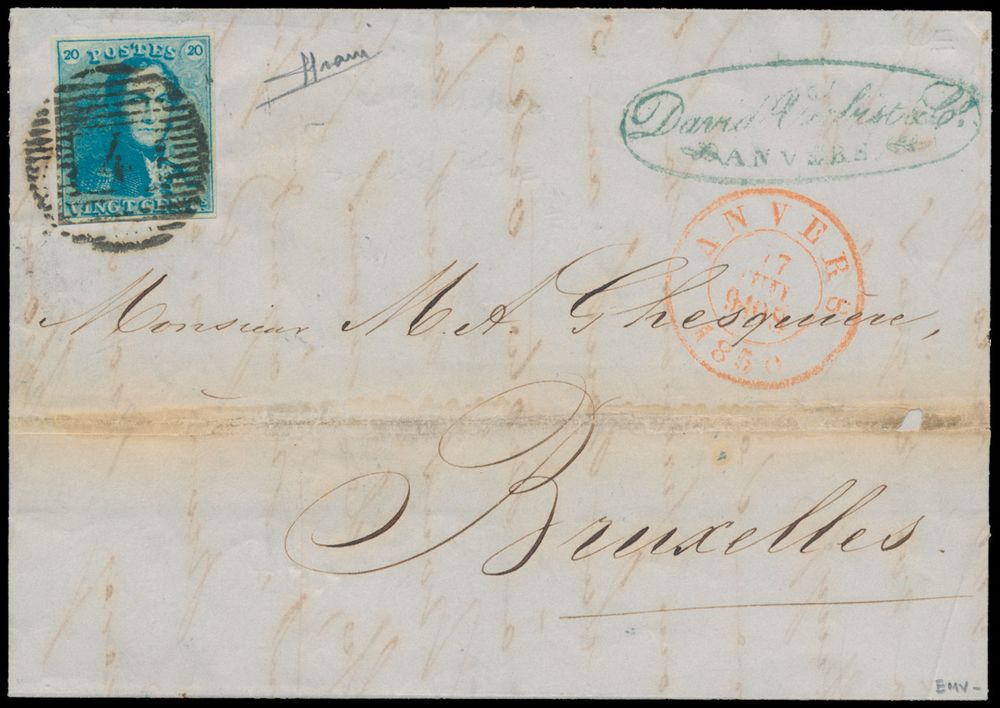 20 POSTES 20
4
VINGT CENTS.
David
ANVERS
ANVERS
17
1850
Monsieur M. A. Ghesquière,
Bruxelles.
EMV-